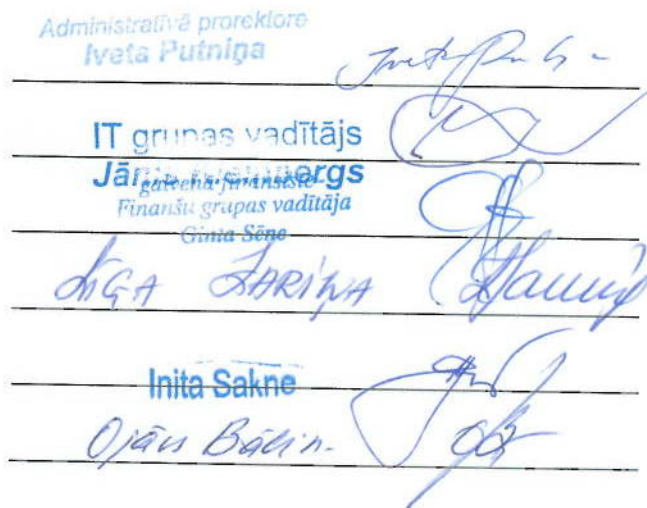 Administratīvā prorektore
Iveta Putniņa
IT grupas vadītājs
Jānis
galvenā finansiste
Finanšu grupas vadītāja
Ginta Sēne
LĪGA ZARIŅA
Inita Sakne
Ojārs